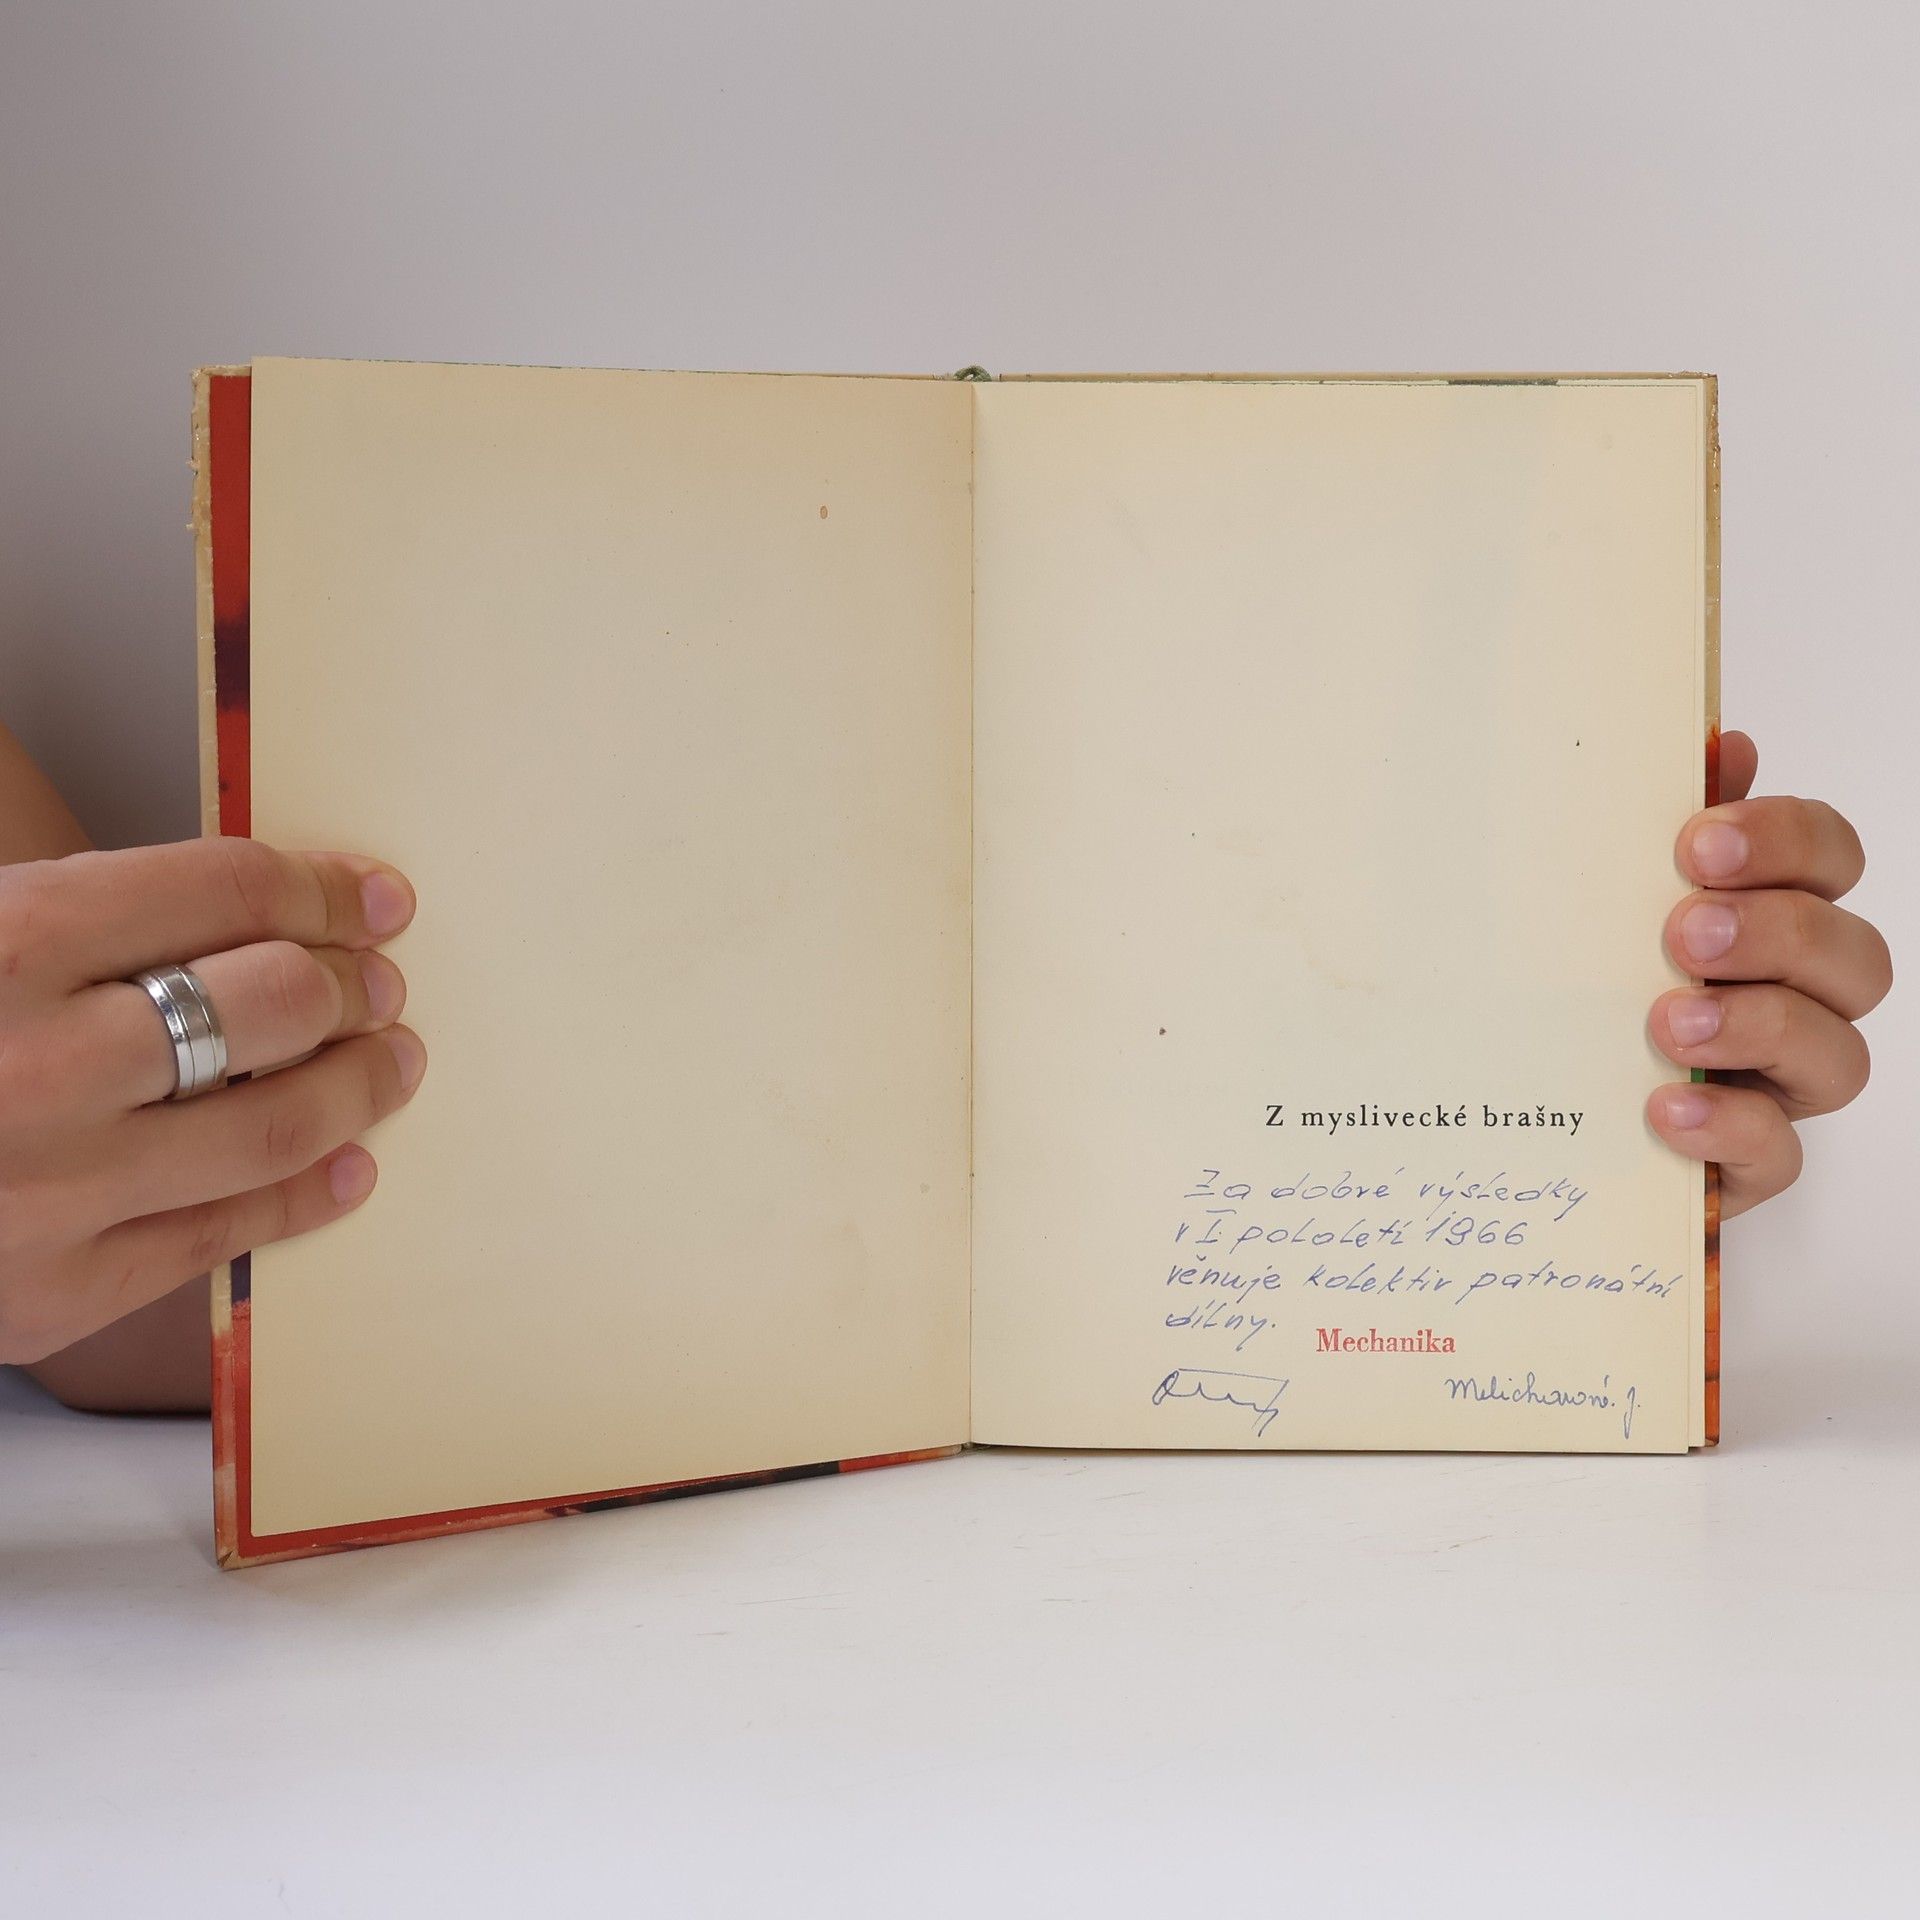 Z myslivecké brašny
Za dobré výsledky
v I. pololetí 1966
věnuje kolektiv patronátní
dílny.
Mechanika
Melicharová. J.